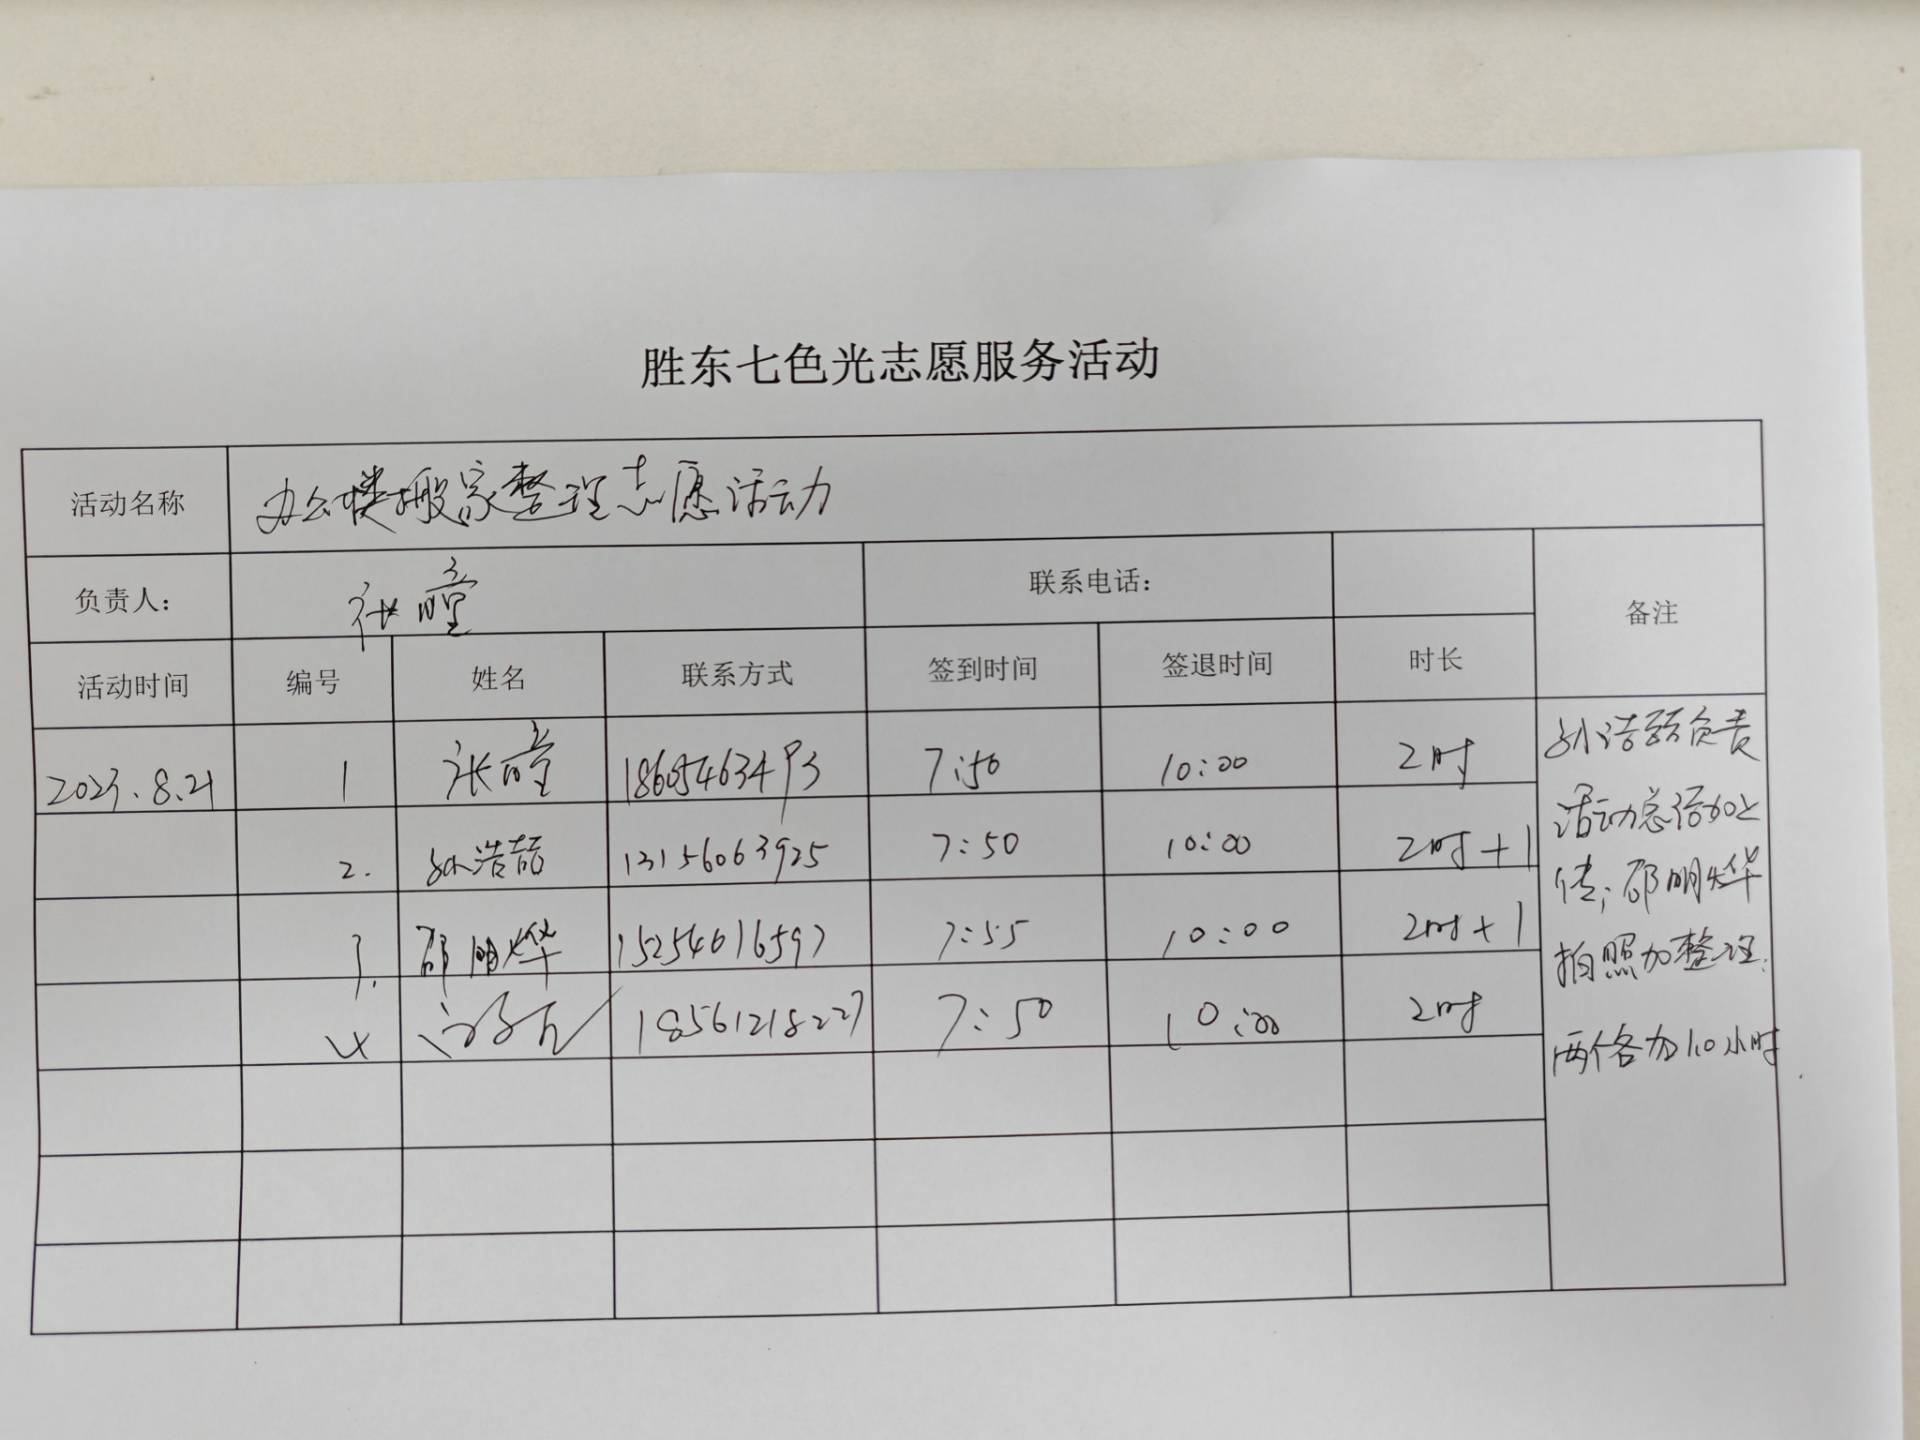 胜东七色光志愿服务活动
活动名称 办公楼搬家整理志愿活动
负责人： 张曈 联系电话： 备注
活动时间 编号 姓名 联系方式 签到时间 签退时间 时长
2023.8.21 1 张曈 18605463493 7:50 10:00 2时
2. 孙浩喆 13156063925 7:50 10:00 2时+1
3. 邵明烨 15254616597 7:55 10:00 2时+1
4 18561218227 7:50 10:00 2时
孙浩 负责
活动总结加上
传；邵明烨
拍照加整理.
两个各加1.0小时